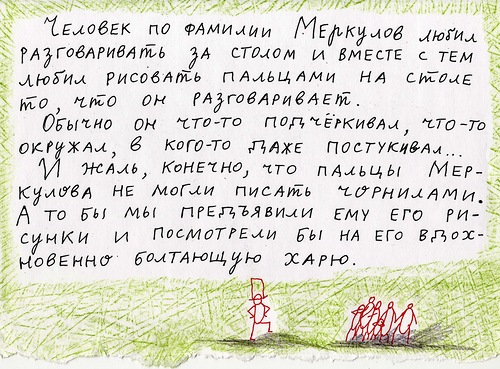 Человек по фамилии Меркулов любил
разговаривать за столом и вместе с тем
любил рисовать пальцами на столе
то, что он разговаривает.
Обычно он что-то подчёркивал, что-то
окружал, в кого-то даже постукивал...
И жаль, конечно, что пальцы Мер-
кулова не могли писать чорнилами.
А то бы мы предъявили ему его ри-
сунки и посмотрели бы на его вдох-
новенно болтающую харю.